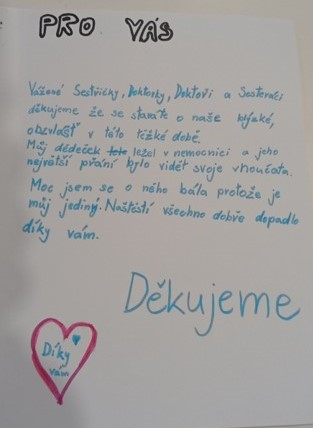 PRO VÁS
Vážené Sestřičky, Doktorky, Doktoři a Sesterníci
děkujeme že se staráte o naše blízké,
obzvlášť v této těžké době.
Můj dědeček ležel v nemocnici a jeho
největší přání bylo vidět svoje vnoučata.
Moc jsem se o něho bála protože je
můj jediný. Naštěstí všechno dobře dopadlo
díky vám.
Děkujeme
Díky
vám